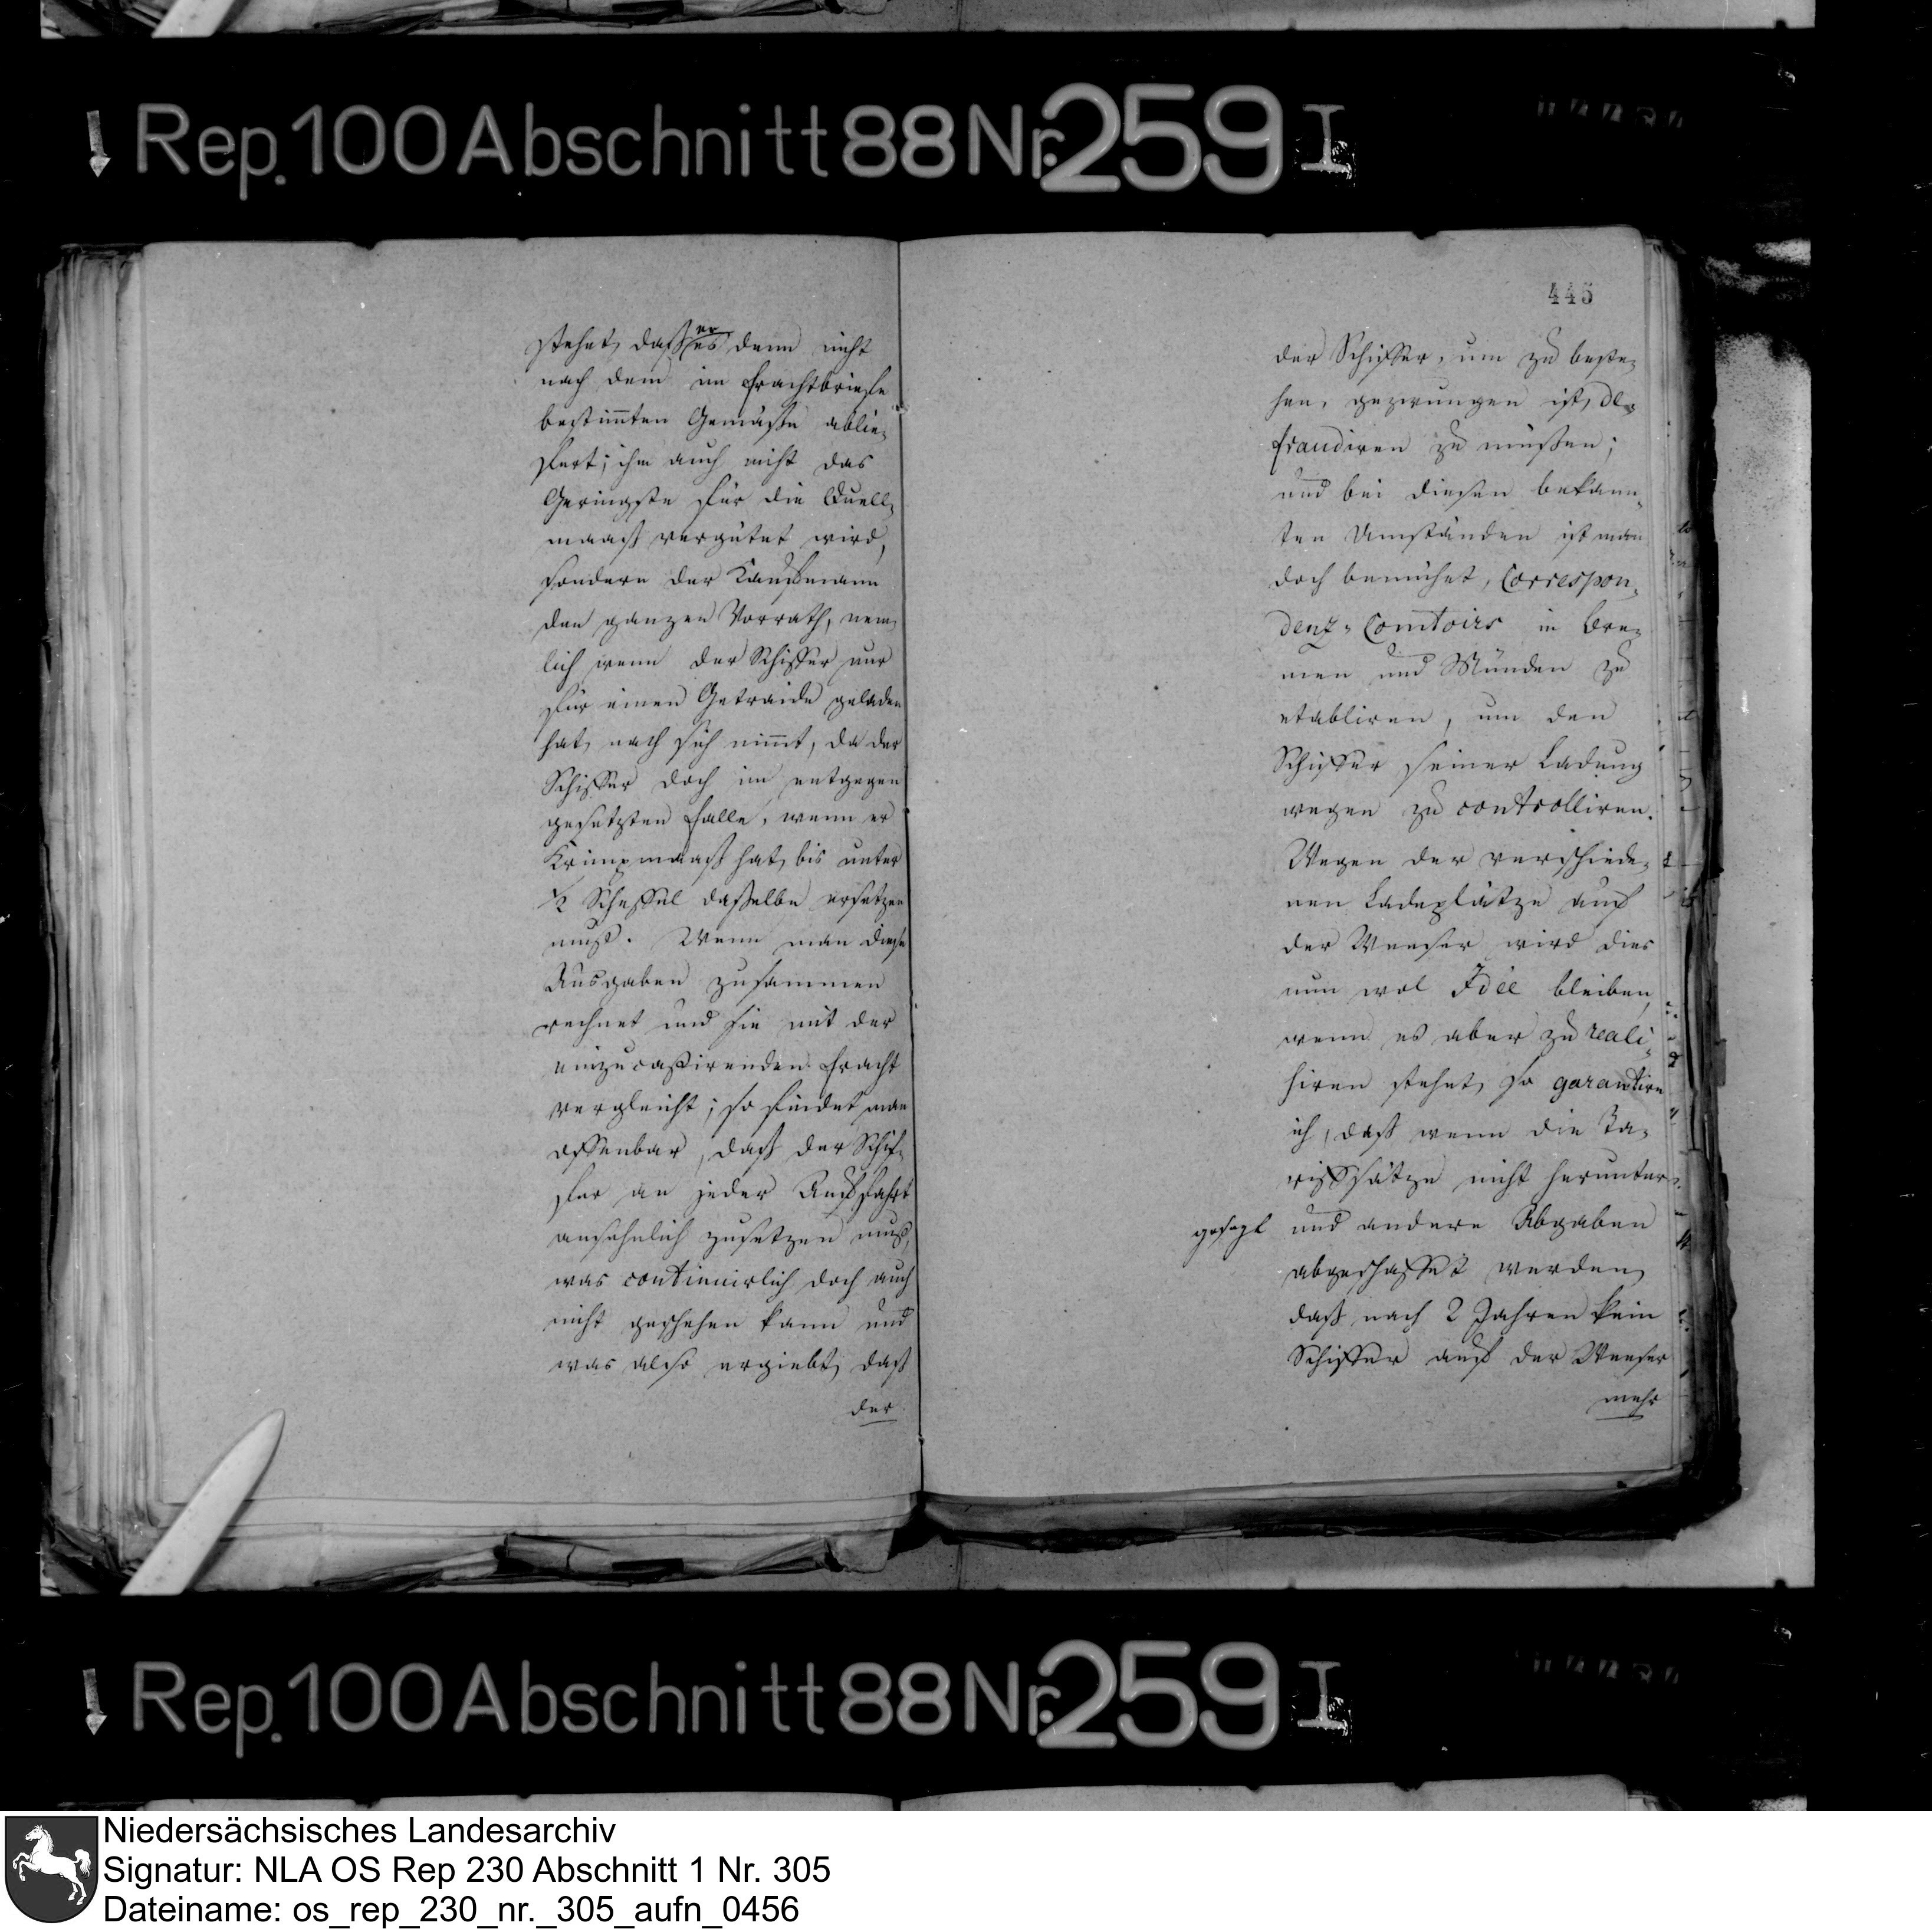 Rep. 100 Abschnitt 88 Nr. 259 I
stehet, daß er es denn nicht
nach dem im Frachtbriefe
bestim̄ten Gemäße ablie-
fert; ihm auch nicht das
Geringste für die Quell-
maaß vergütet wird,
sondern der Kaufmann
den ganzen Vorrath, nem-
lich wenn der Schiffer nur
für einen Getraide geladen
hat, nach sich nim̄t, da der
Schiffer doch im entgegen
gesetzten Falle, wenn er
Krimpmaaß hat, bis unter
1/2 Scheffel daßelbe ersetzen
muß. Wenn man diese
Ausgaben zusammen
rechnet und sie mit der
einzucaßirenden Fracht
vergleicht; so findet man
offenbar, daß der Schif-
fer an jeder Auffahrt
ansehnlich zusetzen muß,
was continuirlich doch auch
nicht geschehen kann und
was also ergiebt, daß
der
445
der Schiffer, um zu beste-
hen, gezwungen ist, de-
fraudiren zu müßen;
und bei diesen bekann-
ten Umständen ist man
doch bemühet, Correspon-
denz-Comtoirs in Bre-
men und Münden zu
etabliren, um den
Schiffer seiner Ladung
wegen zu controlliren.
Wegen der verschiede-
nen Ladeplätze auf
der Weeser wird dies
nun wol Idée bleiben,
wenn es aber zu reali-
siren stehet, so garantire
ich, daß wenn die Ta-
riffsätze nicht herunter-
gesezt und andere Abgaben
abgeschaffet werden,
daß nach 2 Jahren kein
Schiffer auf der Weeser
mehr
Rep. 100 Abschnitt 88 Nr. 259 I
Niedersächsisches Landesarchiv
Signatur: NLA OS Rep 230 Abschnitt 1 Nr. 305
Dateiname: os_rep_230_nr._305_aufn_0456